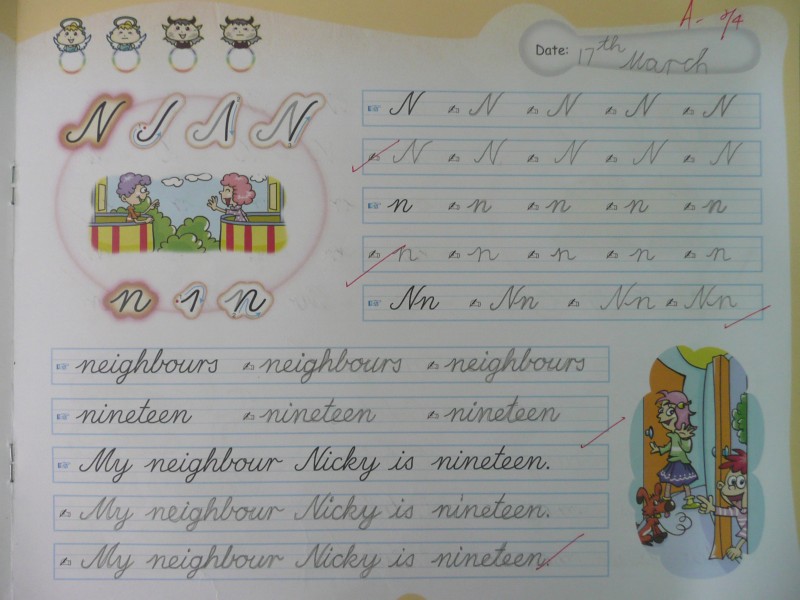 A- 2/4
Date: 17th March
N N N N N
N N N N N
n n n n n
n n n n n
Nn Nn Nn Nn
neighbours neighbours neighbours
nineteen nineteen nineteen
My neighbour Nicky is nineteen.
My neighbour Nicky is nineteen.
My neighbour Nicky is nineteen.